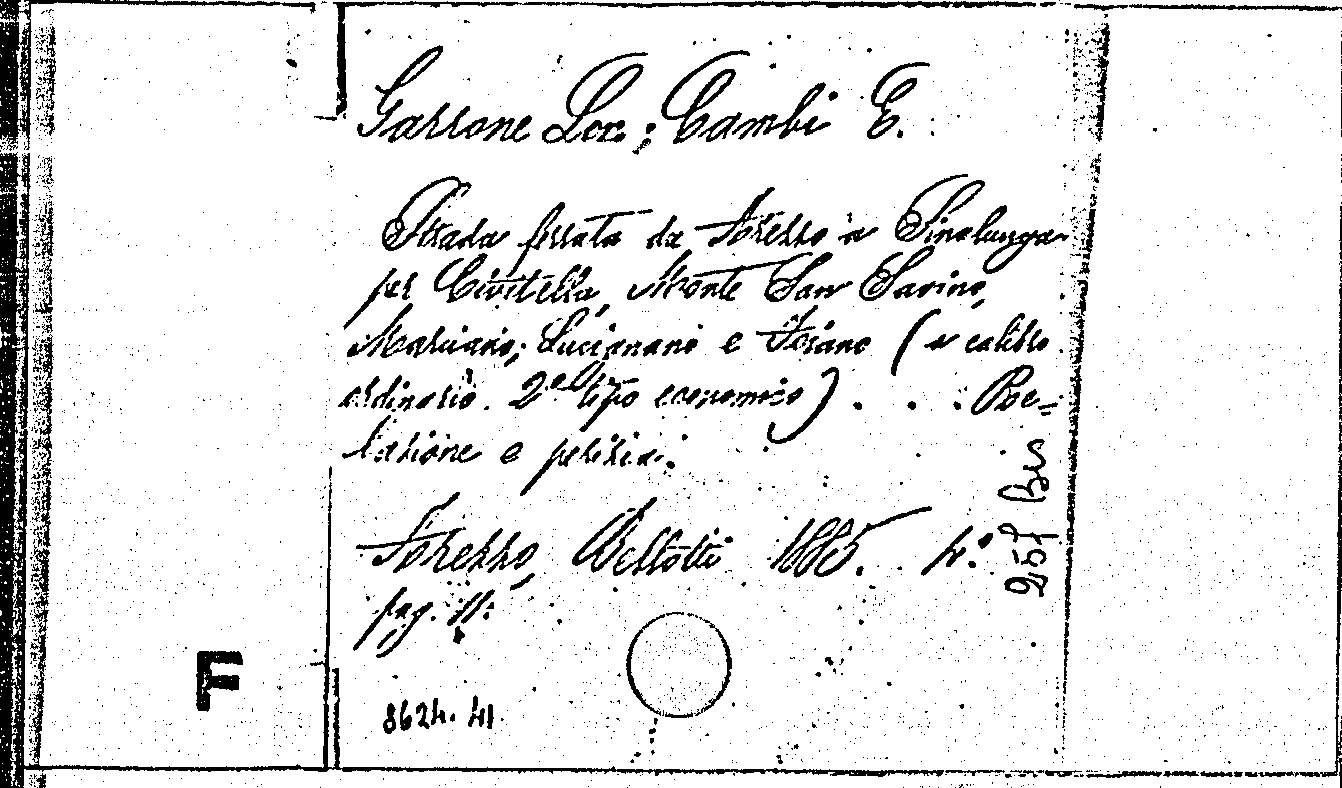 Gassone Lor.; Cambi E.
Strada ferrata da Arezzo a Sinalunga
per Civitella, Monte San Savino,
Marciano, Lucignano e Foiano (a calibro
ordinario. 2º tipo economico) . . . Re=
lazione e perizia.
Arezzo, Bellotti 1885. 4.º
pag. 11.
257 Bis
F
8624. 41